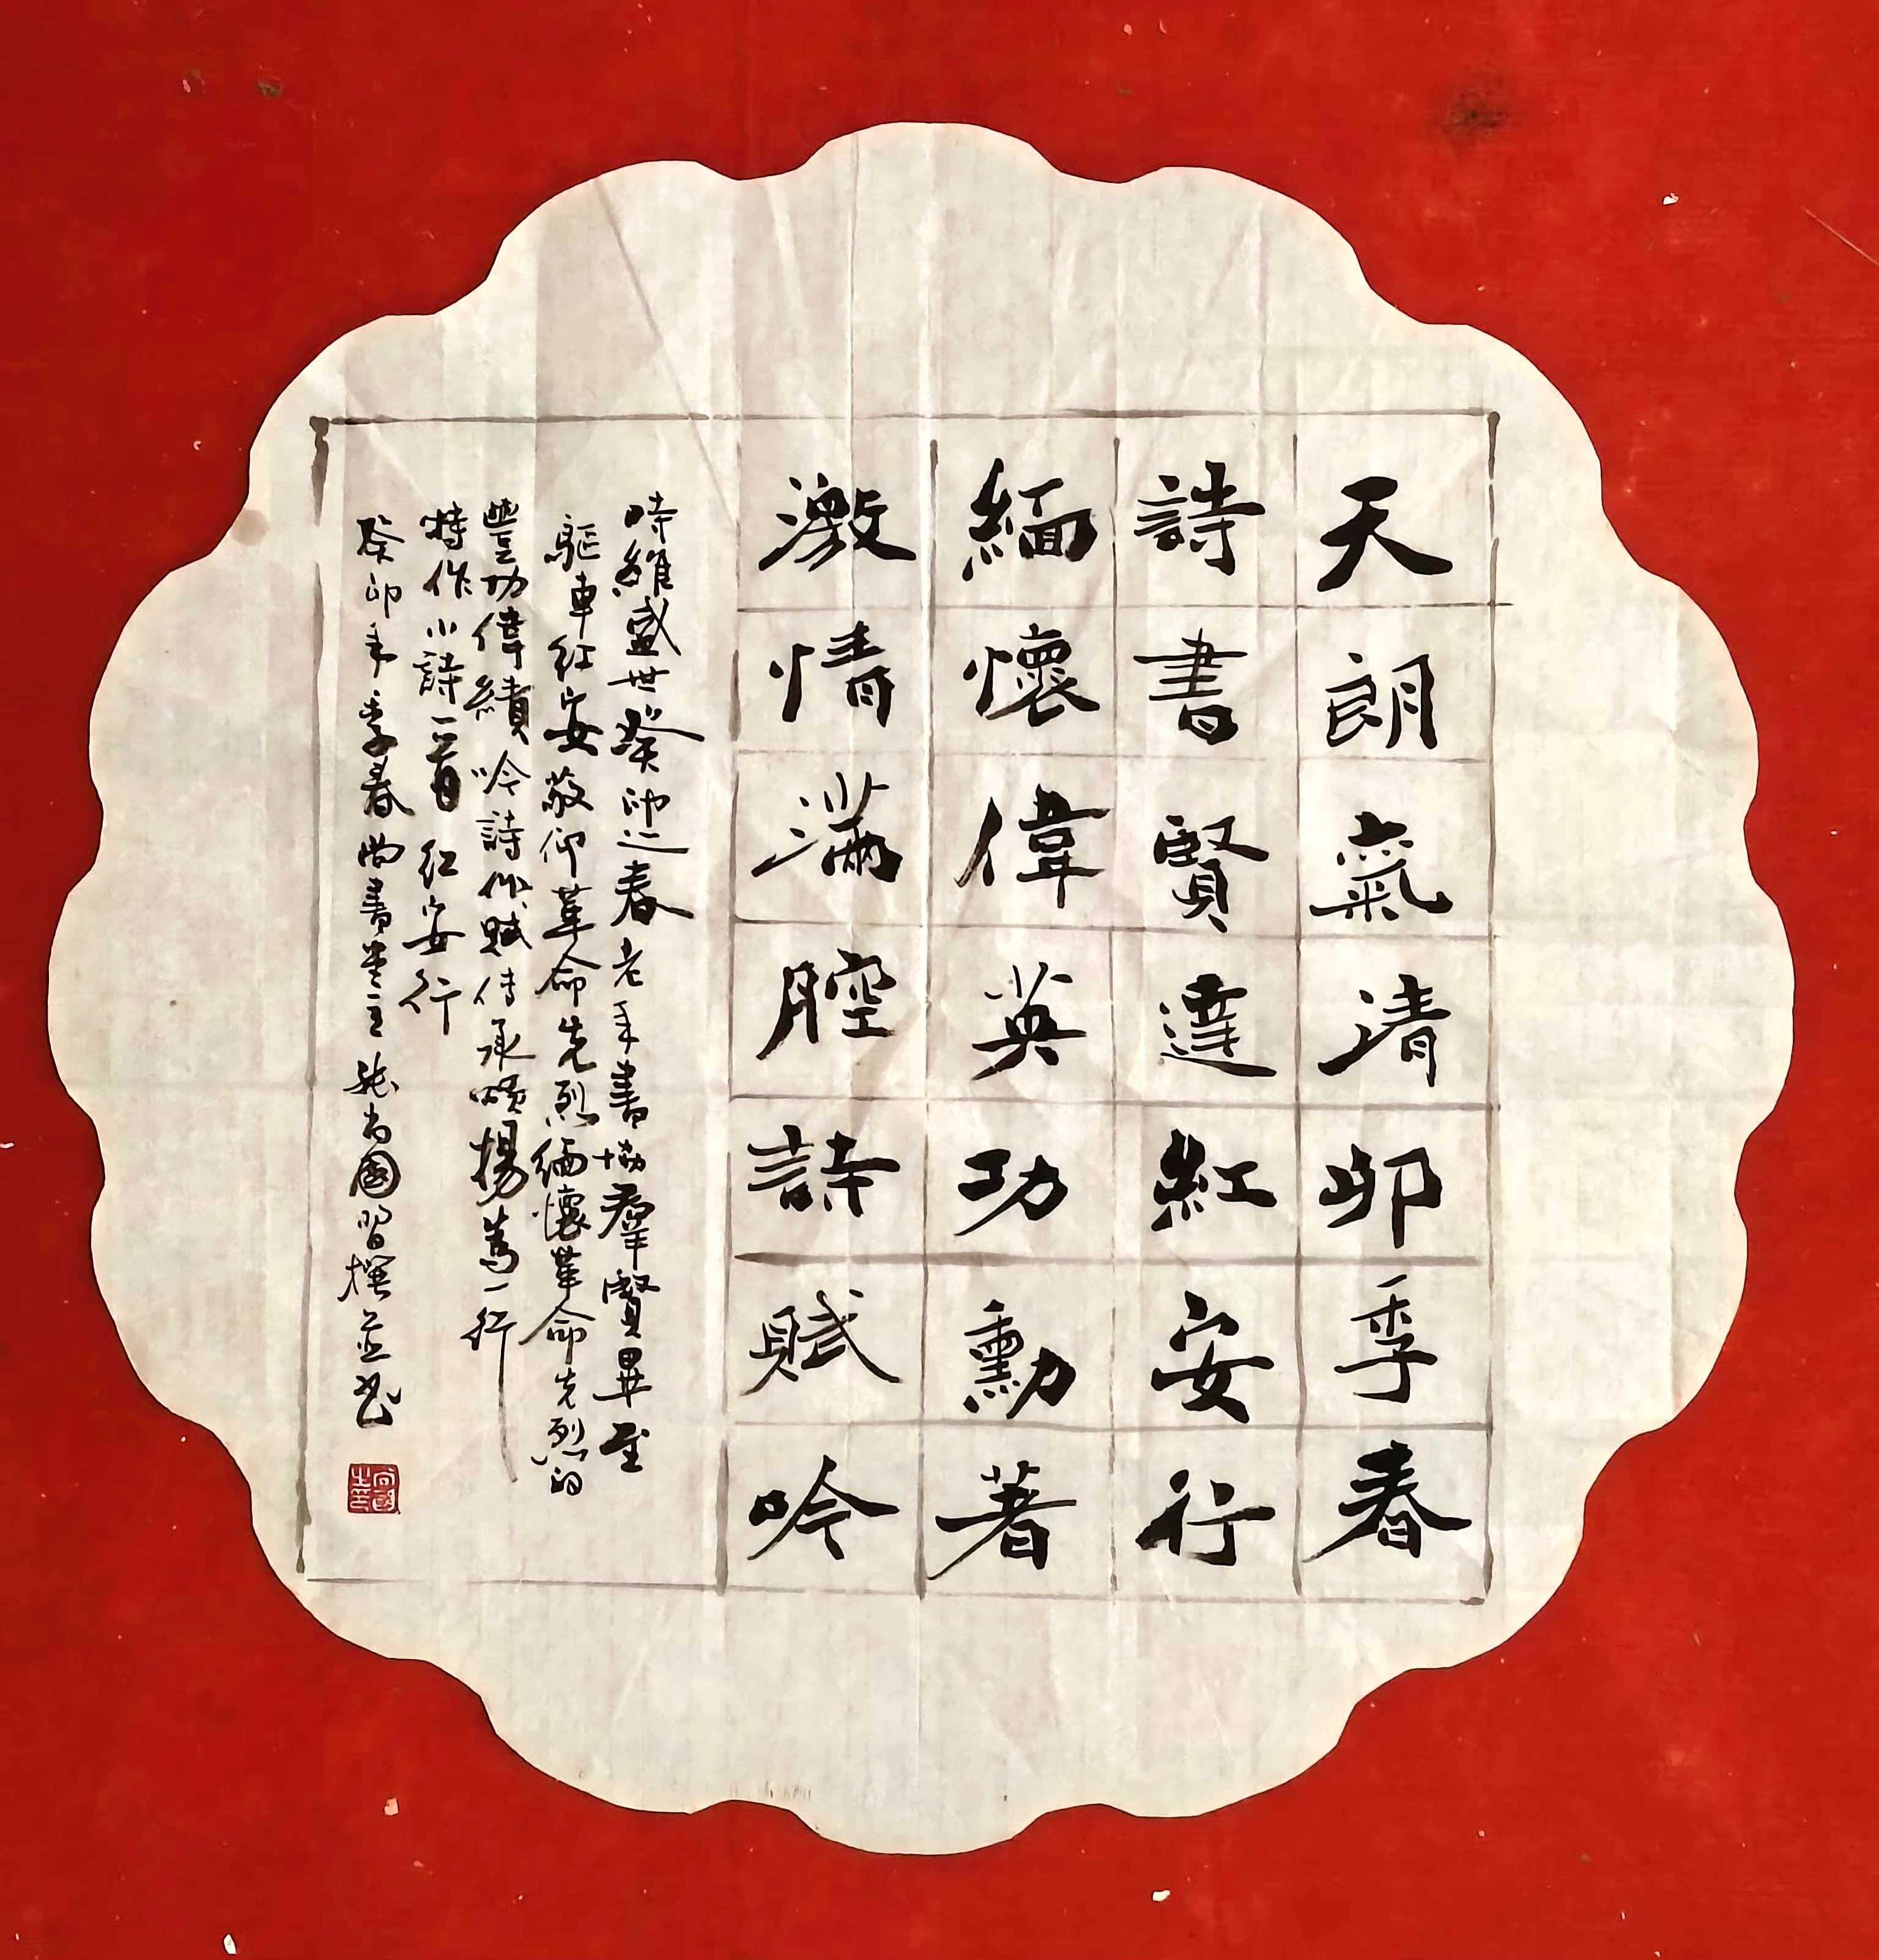 天朗氣清卯季春
詩書賢達紅安行
緬懷偉英功勳著
激情滿腔詩賦吟
時維盛世癸卯迎春老年書協羣賢畢至
驅車紅安敬仰革命先烈緬懷革命先烈的
豐功偉績吟詩作賦傳承頌揚為一行
特作小詩一首 紅安行
癸卯年季春尚書堂主張尚國習撰並書